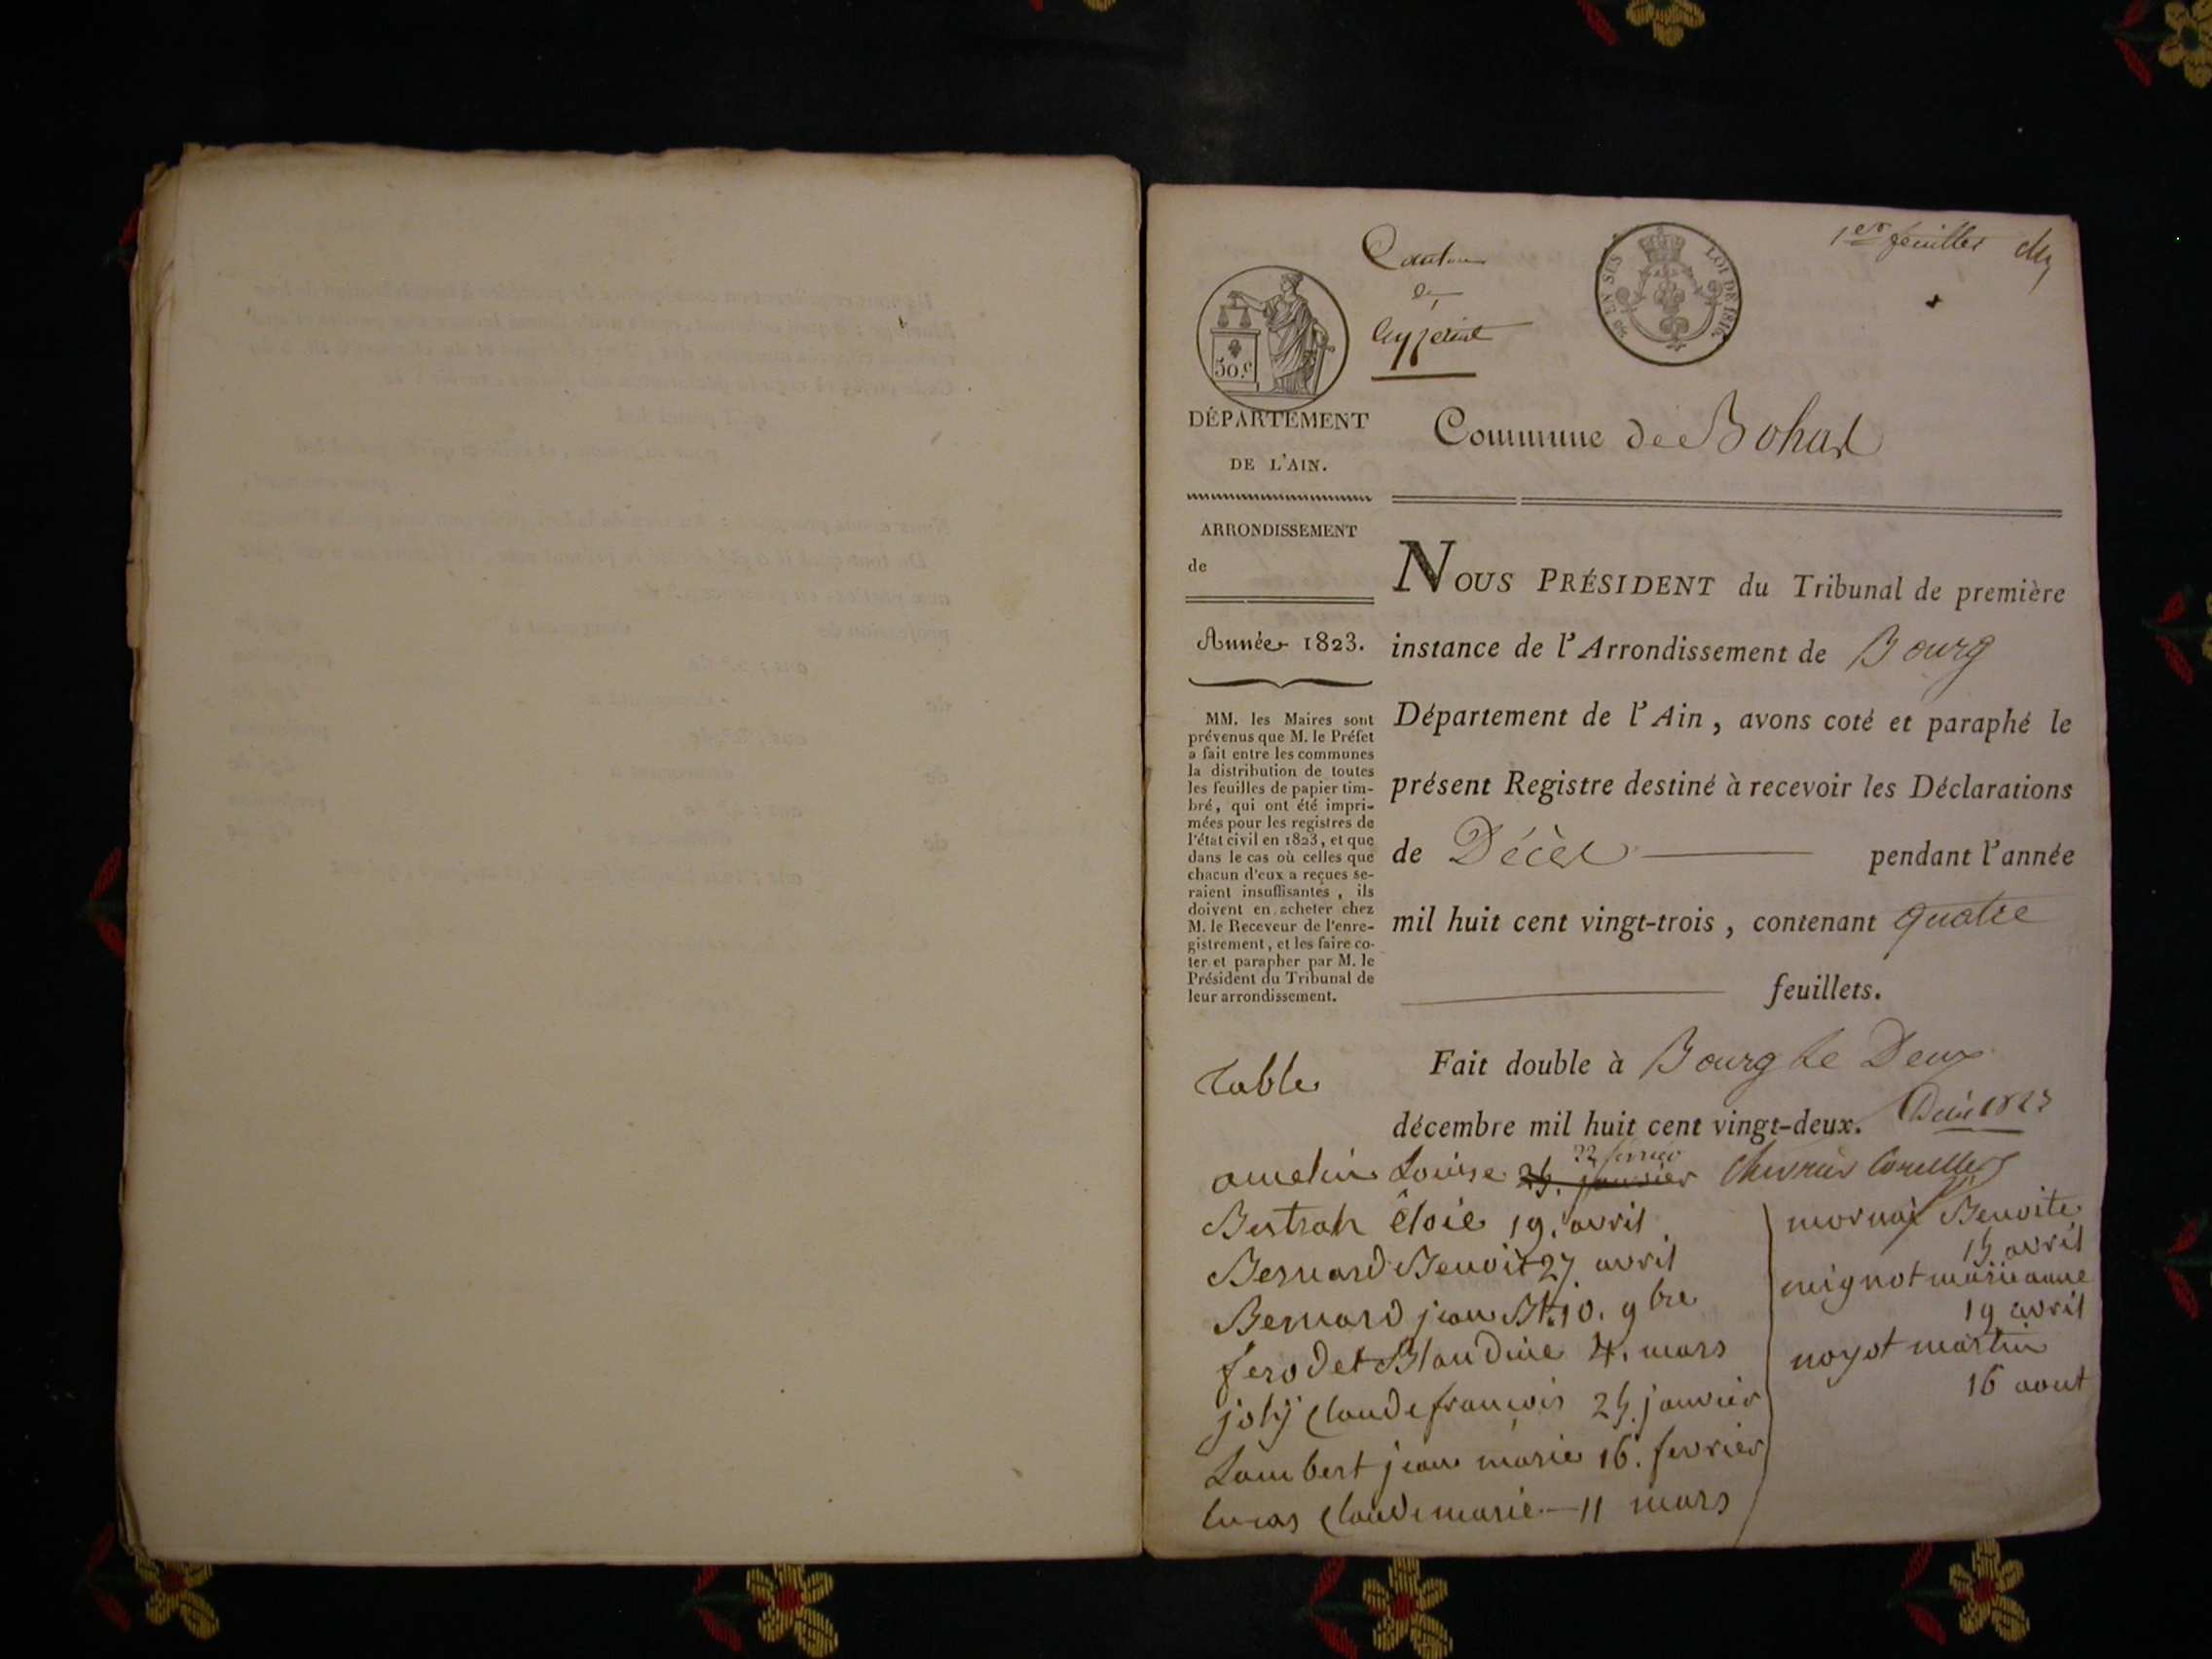 1er feuillet
Canton
de
Ceyzeriat
50 EN SUS
LOI DE 1816
50.c
DÉPARTEMENT
DE L'AIN.
Commune de Bohas
ARRONDISSEMENT
de
Année 1823.
MM. les Maires sont
prévenus que M. le Préfet
a fait entre les communes
la distribution de toutes
les feuilles de papier tim-
bré, qui ont été impri-
mées pour les registres de
l'état civil en 1823, et que
dans le cas où celles que
chacun d'eux a reçues se-
raient insuffisantes, ils
doivent en acheter chez
M. le Receveur de l'enre-
gistrement, et les faire co-
ter et parapher par M. le
Président du Tribunal de
leur arrondissement.
NOUS PRÉSIDENT du Tribunal de première
instance de l'Arrondissement de Bourg
Département de l'Ain, avons coté et paraphé le
présent Registre destiné à recevoir les Déclarations
de Décès pendant l'année
mil huit cent vingt-trois, contenant quatre
feuillets.
Fait double à Bourg le Deux
décembre mil huit cent vingt-deux.
Table
22 fevrier
amelin Louise 24. janvier
Bertrah éloie 19. avril
Bernard Benoit 27 avril
Bernard jean Bte 10. 9bre
ferodet Blandine 4. mars
joly Claude françois 24. janvier
Lambert jean marie 16. fevrier
lucas Claude marie 11 mars
mornay Benoite
15 avril
mignot marie anne
19 avril
noyot martin
16 aout